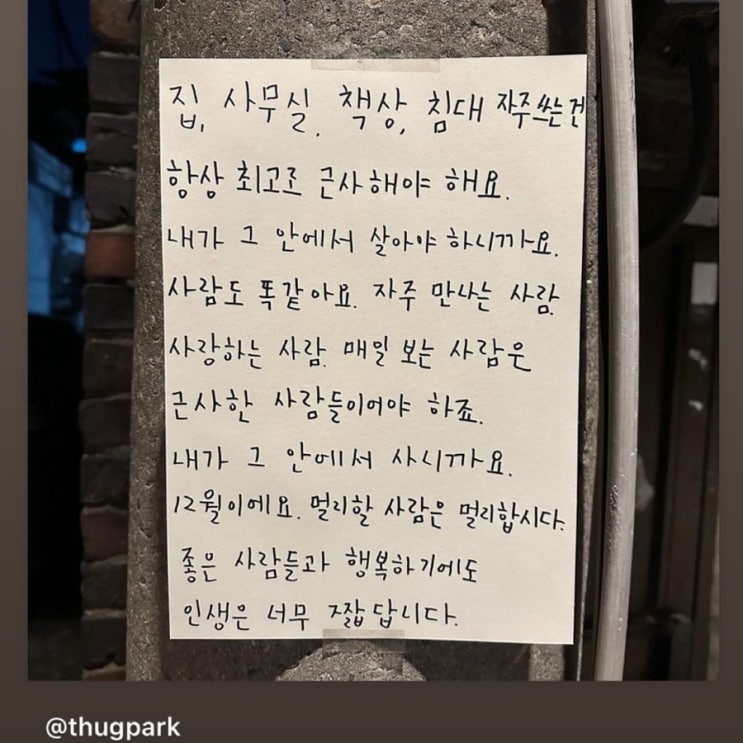 집, 사무실, 책상, 침대 자주 쓰는 건
항상 최고로 근사해야 해요.
내가 그 안에서 살아야 하니까요.
사람도 똑같아요. 자주 만나는 사람
사랑하는 사람. 매일 보는 사람은
근사한 사람들이어야 하죠.
내가 그 안에서 사니까요.
12월이에요. 멀리할 사람은 멀리합시다.
좋은 사람들과 행복하기에도
인생은 너무 짧답니다.
@thugpark